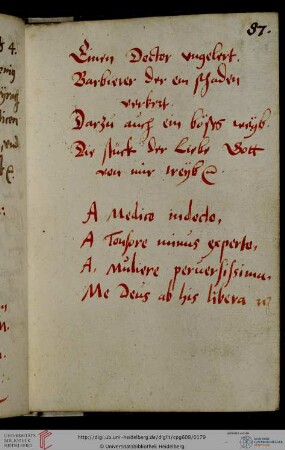 87.
Einen Doctor ungelert.
Barbierer der ein schaden
verkert.
Darzu auch ein böses weyb.
Die stück der Liebe Gott
von mir treyb
A Medico indocto,
A Tonsore minus experto,
A Muliere perversissima,
Me Deus ab his libera
http://digi.ub.uni-heidelberg.de/diglit/cpg808/0179
© Universitätsbibliothek Heidelberg